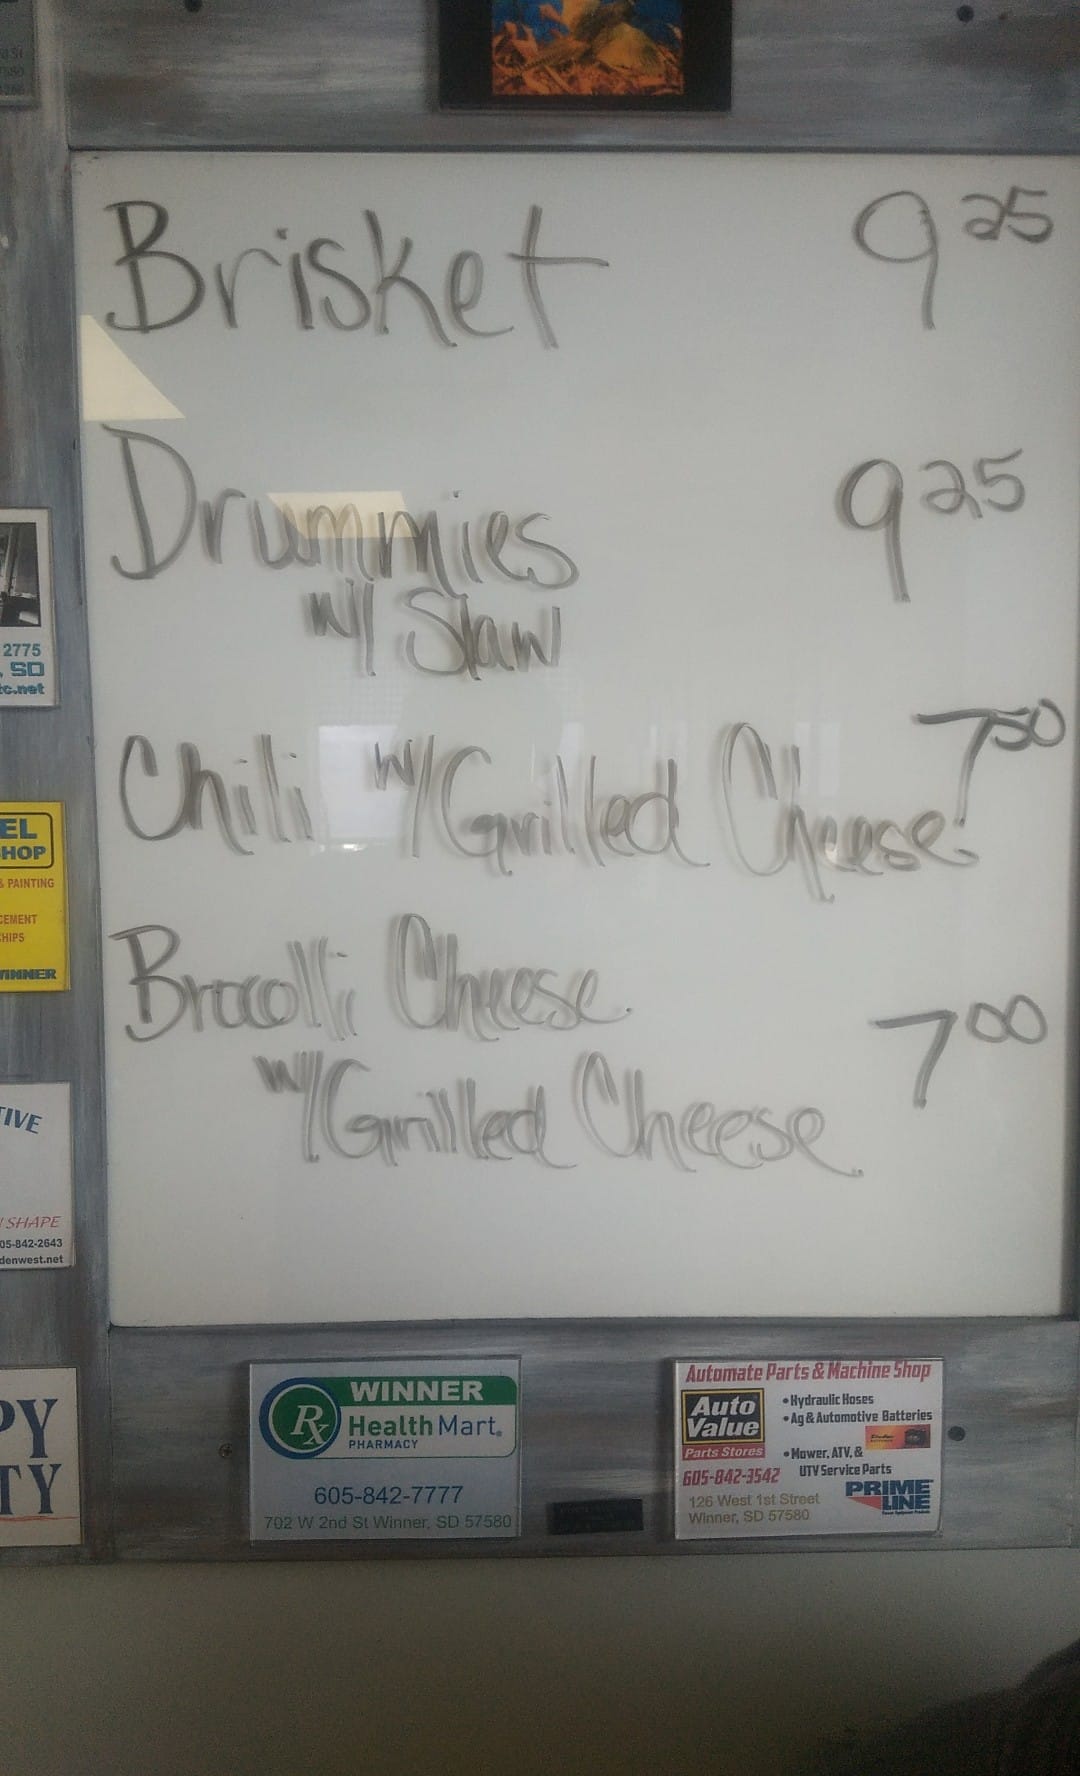 Brisket 9 25
Drummies 9 25
w/ Slaw
Chili w/ Grilled Cheese 7 50
Brocolli Cheese
w/ Grilled Cheese 7 00
2775
, SD
tc.net
EL
HOP
& PAINTING
CEMENT
HIPS
WINNER
TIVE
N SHAPE
05-842-2643
denwest.net
PY
TY
Rx
WINNER
Health Mart.
PHARMACY
605-842-7777
702 W 2nd St Winner, SD 57580
Automate Parts & Machine Shop
Auto
Value
Parts Stores
605-842-3542
126 West 1st Street
Winner, SD 57580
• Hydraulic Hoses
• Ag & Automotive Batteries
• Mower, ATV, &
UTV Service Parts
PRIME
LINE